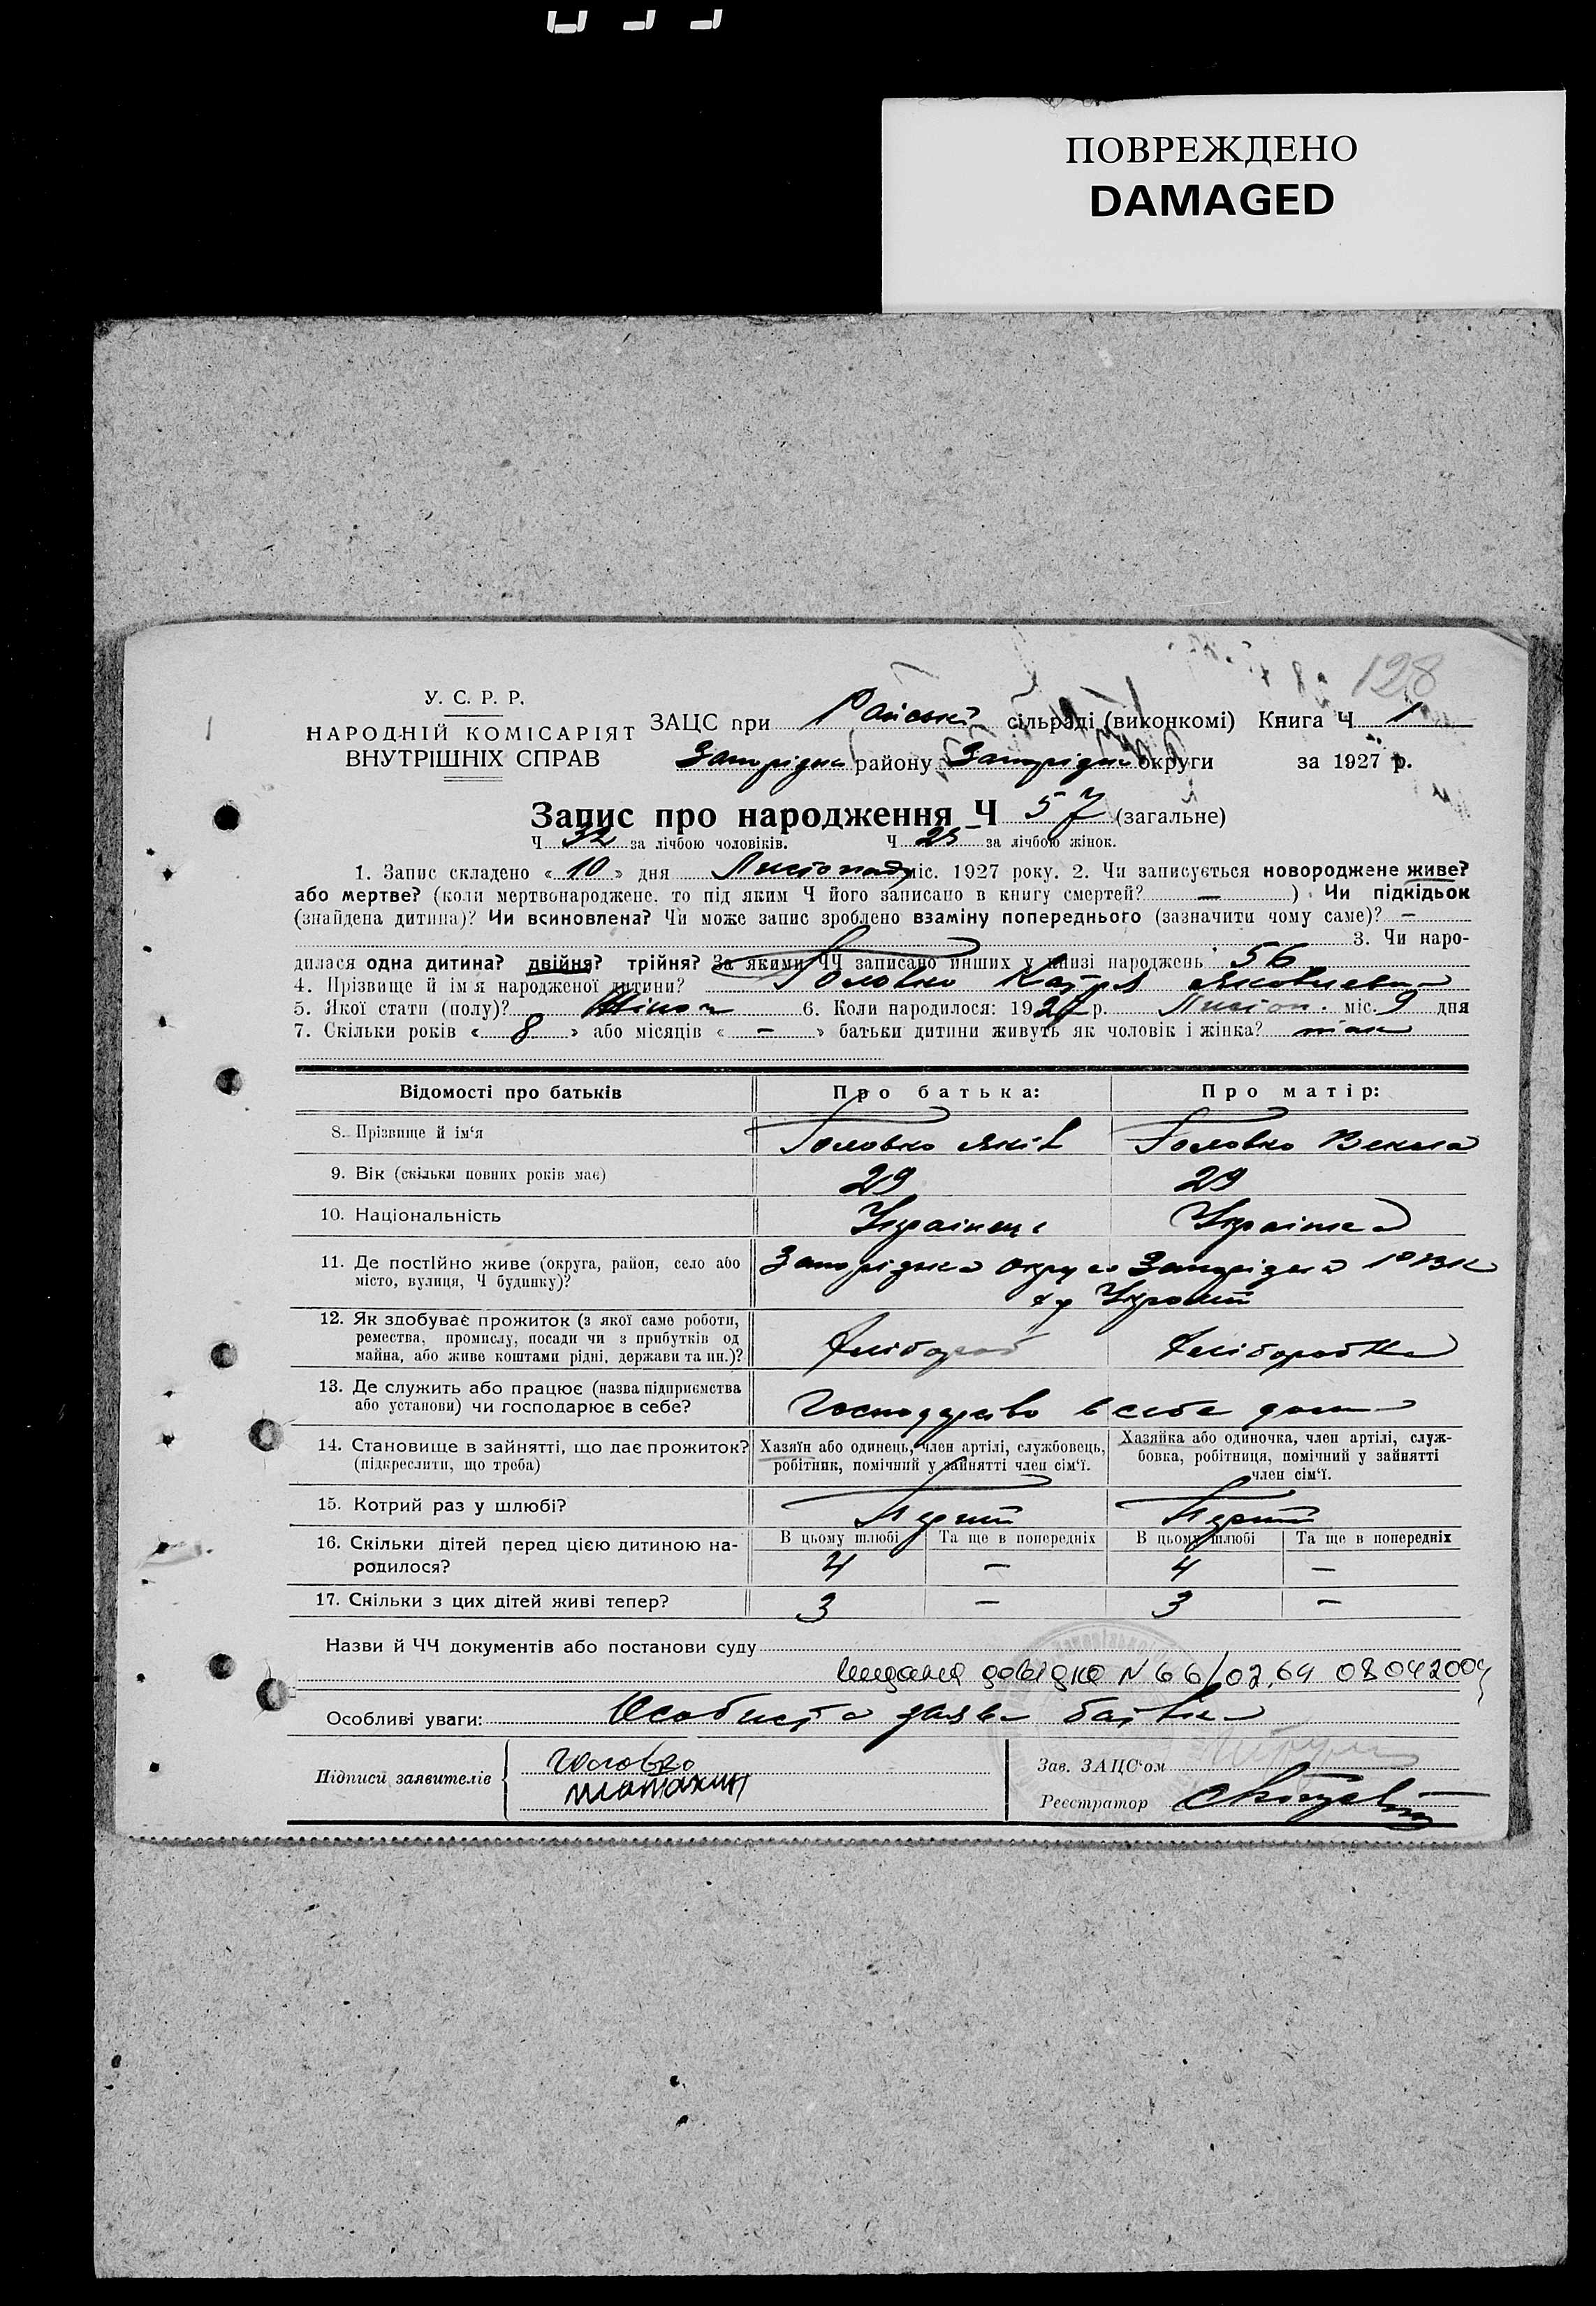 ПОВРЕЖДЕНО
DAMAGED
128
У. С. Р. Р.
НАРОДНІЙ КОМІСАРІЯТ
ВНУТРІШНІХ СПРАВ
ЗАЦС при Райській сільраді (виконкомі) Книга Ч 1
Запорізька району Запорізька округи за 1927 р.
Запис про народження Ч 57 (загальне)
Ч 32 за лічбою чоловіків. Ч 25 за лічбою жінок.
1. Запис складено « 10 » дня Листопада міс. 1927 року. 2. Чи записується новороджене живе?
або мертве? (коли мертвонароджене, то під яким Ч його записано в книгу смертей? — ) Чи підкідьок
(знайдена дитина)? Чи всиновлена? Чи може запис зроблено взаміну попереднього (зазначити чому саме)? —
3. Чи наро-
дилася одна дитина? двійня? трійня? За якими ЧЧ записано инших у книзі народжень 56
4. Прізвище й ім'я народженої дитини? Головко Катря Яковлевна
5. Якої стати (полу)? Жіноч 6. Коли народилося: 1927 р. Листоп. міс. 9 дня
7. Скільки років « 8 » або місяців « — » батьки дитини живуть як чоловік і жінка? так
Відомості про батьків Про батька: Про матір:
8. Прізвище й ім'я Головко Яків Головко Векла
9. Вік (скільки повних років має) 29 29
10. Національність Українець Українка
11. Де постійно живе (округа, район, село або
місто, вулиця, Ч будинку)? Запорізька округа Запорізька РВК
12. Як здобуває прожиток (з якої саме роботи,
ремества, промислу, посади чи з прибутків од
майна, або живе коштами рідні, держави та ин.)? Хлібороб Хліборобка
13. Де служить або працює (назва підприємства
або установи) чи господарює в себе? Господарство в себе дома
14. Становище в зайнятті, що дає прожиток?
(підкреслити, що треба)
Хазяїн або одинець, член артілі, службовець,
робітник, помічний у зайнятті член сім'ї.
Хазяйка або одиночка, член артілі, служ-
бовка, робітниця, помічний у зайнятті
член сім'ї.
15. Котрий раз у шлюбі? Перший Перший
16. Скільки дітей перед цією дитиною на-
родилося?
В цьому шлюбі Та ще в попередніх В цьому шлюбі Та ще в попередніх
4 — 4 —
17. Скільки з цих дітей живі тепер? 3 — 3 —
Назви й ЧЧ документів або постанови суду
видана довідка N 66/02,64 08042004
Особливі уваги: Особиста заява батька
Підписи заявителів Головко
Зав. ЗАЦС'ом
Реєстратор